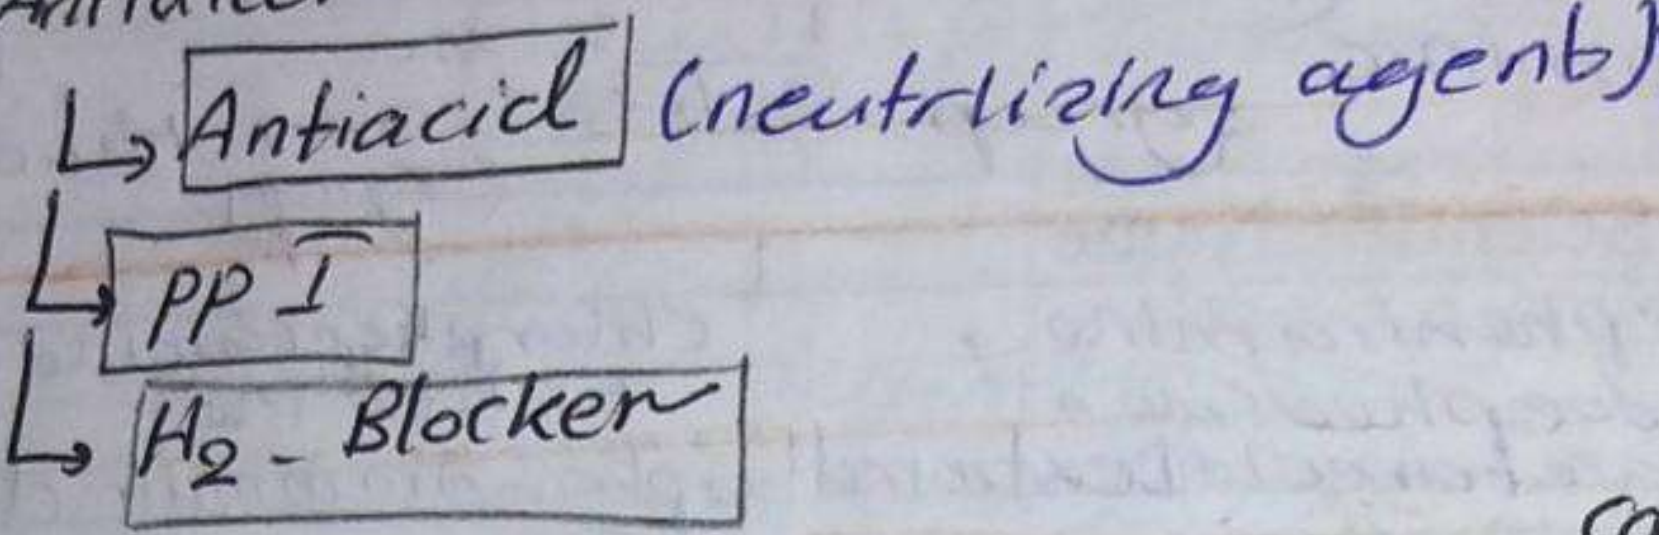 ↳ Antiacid (neutrlizing agent)
↳ PPI
↳ H₂ - Blocker